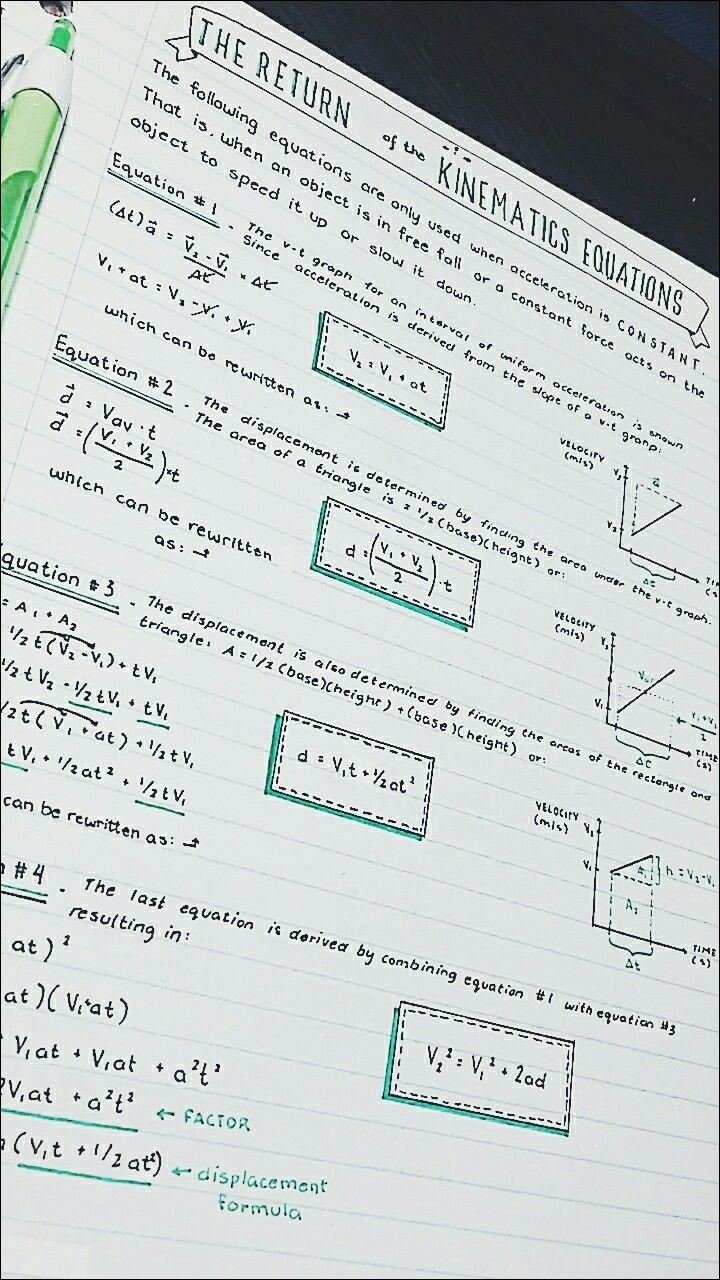 THE RETURN of the KINEMATICS EQUATIONS
The following equations are only used when acceleration is CONSTANT.
That is, when an object is in free fall or a constant force acts on the
object to speed it up or slow it down.
Equation #1 - The v-t graph for an interval of uniform acceleration is shown
Since acceleration is derived from the slope of a v-t graph:
(Δt) a⃗ = V⃗₂ - V⃗₁ / Δt × Δt
V₁ + at = V₂ - V₁ + V₁
which can be rewritten as: →
V₂ = V₁ + at
VELOCITY (m/s)
V₂
a⃗
V₂
Δt
TIME (s)
Equation #2 - The displacement is determined by finding the area under the v-t graph.
- The area of a triangle is = 1/2 (base)(height) or:
d⃗ = Vav · t
d⃗ = (V₁ + V₂ / 2) × t
which can be rewritten
as: →
d = (V₁ + V₂ / 2) · t
VELOCITY (m/s)
V₂
Vav
V₁
V₁+V₂ / 2
Δt
TIME (s)
quation #3 - The displacement is also determined by finding the areas of the rectangle and
triangle: A = 1/2 (base)(height) + (base)(height) or:
= A₁ + A₂
1/2 t (V₂ - V₁) + tV₁
1/2 tV₂ - 1/2 tV₁ + tV₁
/2 t (V₁ + at) + 1/2 tV₁
tV₁ + 1/2 at² + 1/2 tV₁
can be rewritten as: →
d = V₁t + 1/2 at²
VELOCITY (m/s)
V₂
V₁
A₁
h = V₂ - V₁
A₂
Δt
TIME (s)
#4 - The last equation is derived by combining equation #1 with equation #3
resulting in:
at)²
at)(V₁+at)
V₁at + V₁at + a²t²
2V₁at + a²t² ← FACTOR
(V₁t + 1/2 at²) ← displacement
formula
V₂² = V₁² + 2ad